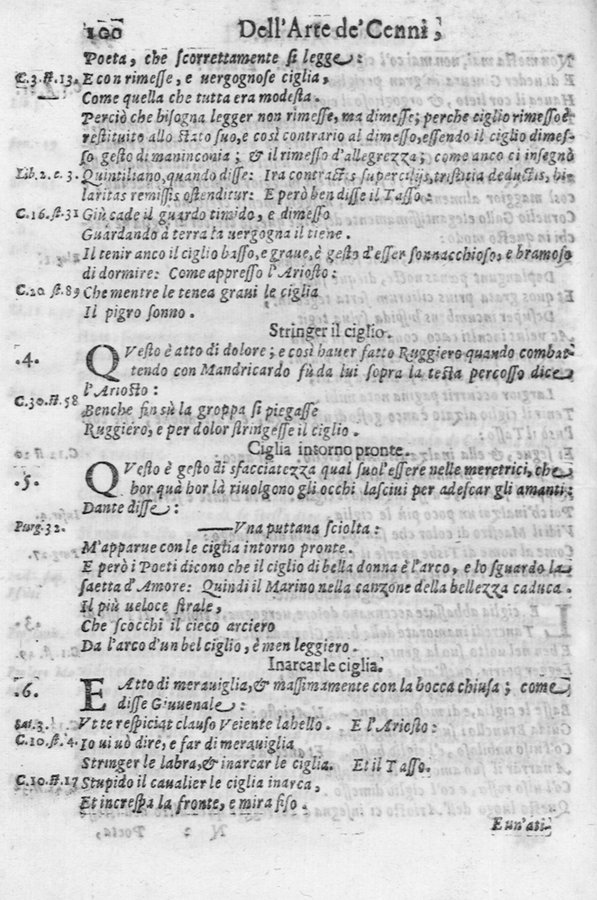 100 Dell'Arte de' Cenni,
Poeta, che scorrettamente si legge:
C.3.st.13. E con rimesse, e uergognose ciglia,
Come quella che tutta era modesta.
Perciò che bisogna legger non rimesse, ma dimesse; perche ciglio rimesso è
restituito allo stato suo, e così contrario al dimesso, essendo il ciglio dimes-
so gesto di maninconia; & il rimesso d'allegrezza; come anco ci insegnò
Lib.2.c.3. Quintiliano, quando disse: Ira contractis supercilijs, tristitia deductis, hi-
laritas remissis ostenditur: E però ben disse il Tasso:
C.16.st.31 Giù cade il guardo timido, e dimesso
Guardando à terra la uergogna il tiene.
Il tenir anco il ciglio basso, e graue, è gesto d'esser sonnacchioso, e bramoso
di dormire: Come appresso l'Ariosto:
C.20 st.89 Che mentre le tenea graui le ciglia
Il pigro sonno.
Stringer il ciglio.
.4. QVesto è atto di dolore; e così hauer fatto Ruggiero quando combat-
tendo con Mandricardo fù da lui sopra la testa percosso dice
l'Ariosto:
C.30.st.58 Benche fin sù la groppa si piegasse
Ruggiero, e per dolor stringesse il ciglio.
Ciglia intorno pronte.
.5. QVesto è gesto di sfacciatezza qual suol'essere nelle meretrici, che
hor quà hor là riuolgono gli occhi lasciui per adescar gli amanti;
Dante disse:
Purg.32. —Vna puttana sciolta:
M'apparue con le ciglia intorno pronte.
E però i Poeti dicono che il ciglio di bella donna è l'arco, e lo sguardo la
saetta d'Amore: Quindi il Marino nella canzone della bellezza caduca.
.3. Il più ueloce strale,
Che scocchi il cieco arciero
Da l'arco d'un bel ciglio, è men leggiero.
Inarcar le ciglia.
.6. E Atto di merauiglia, & massimamente con la bocca chiusa; come
disse Giuuenale:
Sat.3. Vt te respiciat clauso Veiente labello. E l'Ariosto:
C.10.st.4. Io ui uò dire, e far di merauiglia
Stringer le labra, & inarcar le ciglia. Et il Tasso.
C.10.st.17 Stupido il caualier le ciglia inarca,
Et increspa la fronte, e mira fiso.
E un'atti-